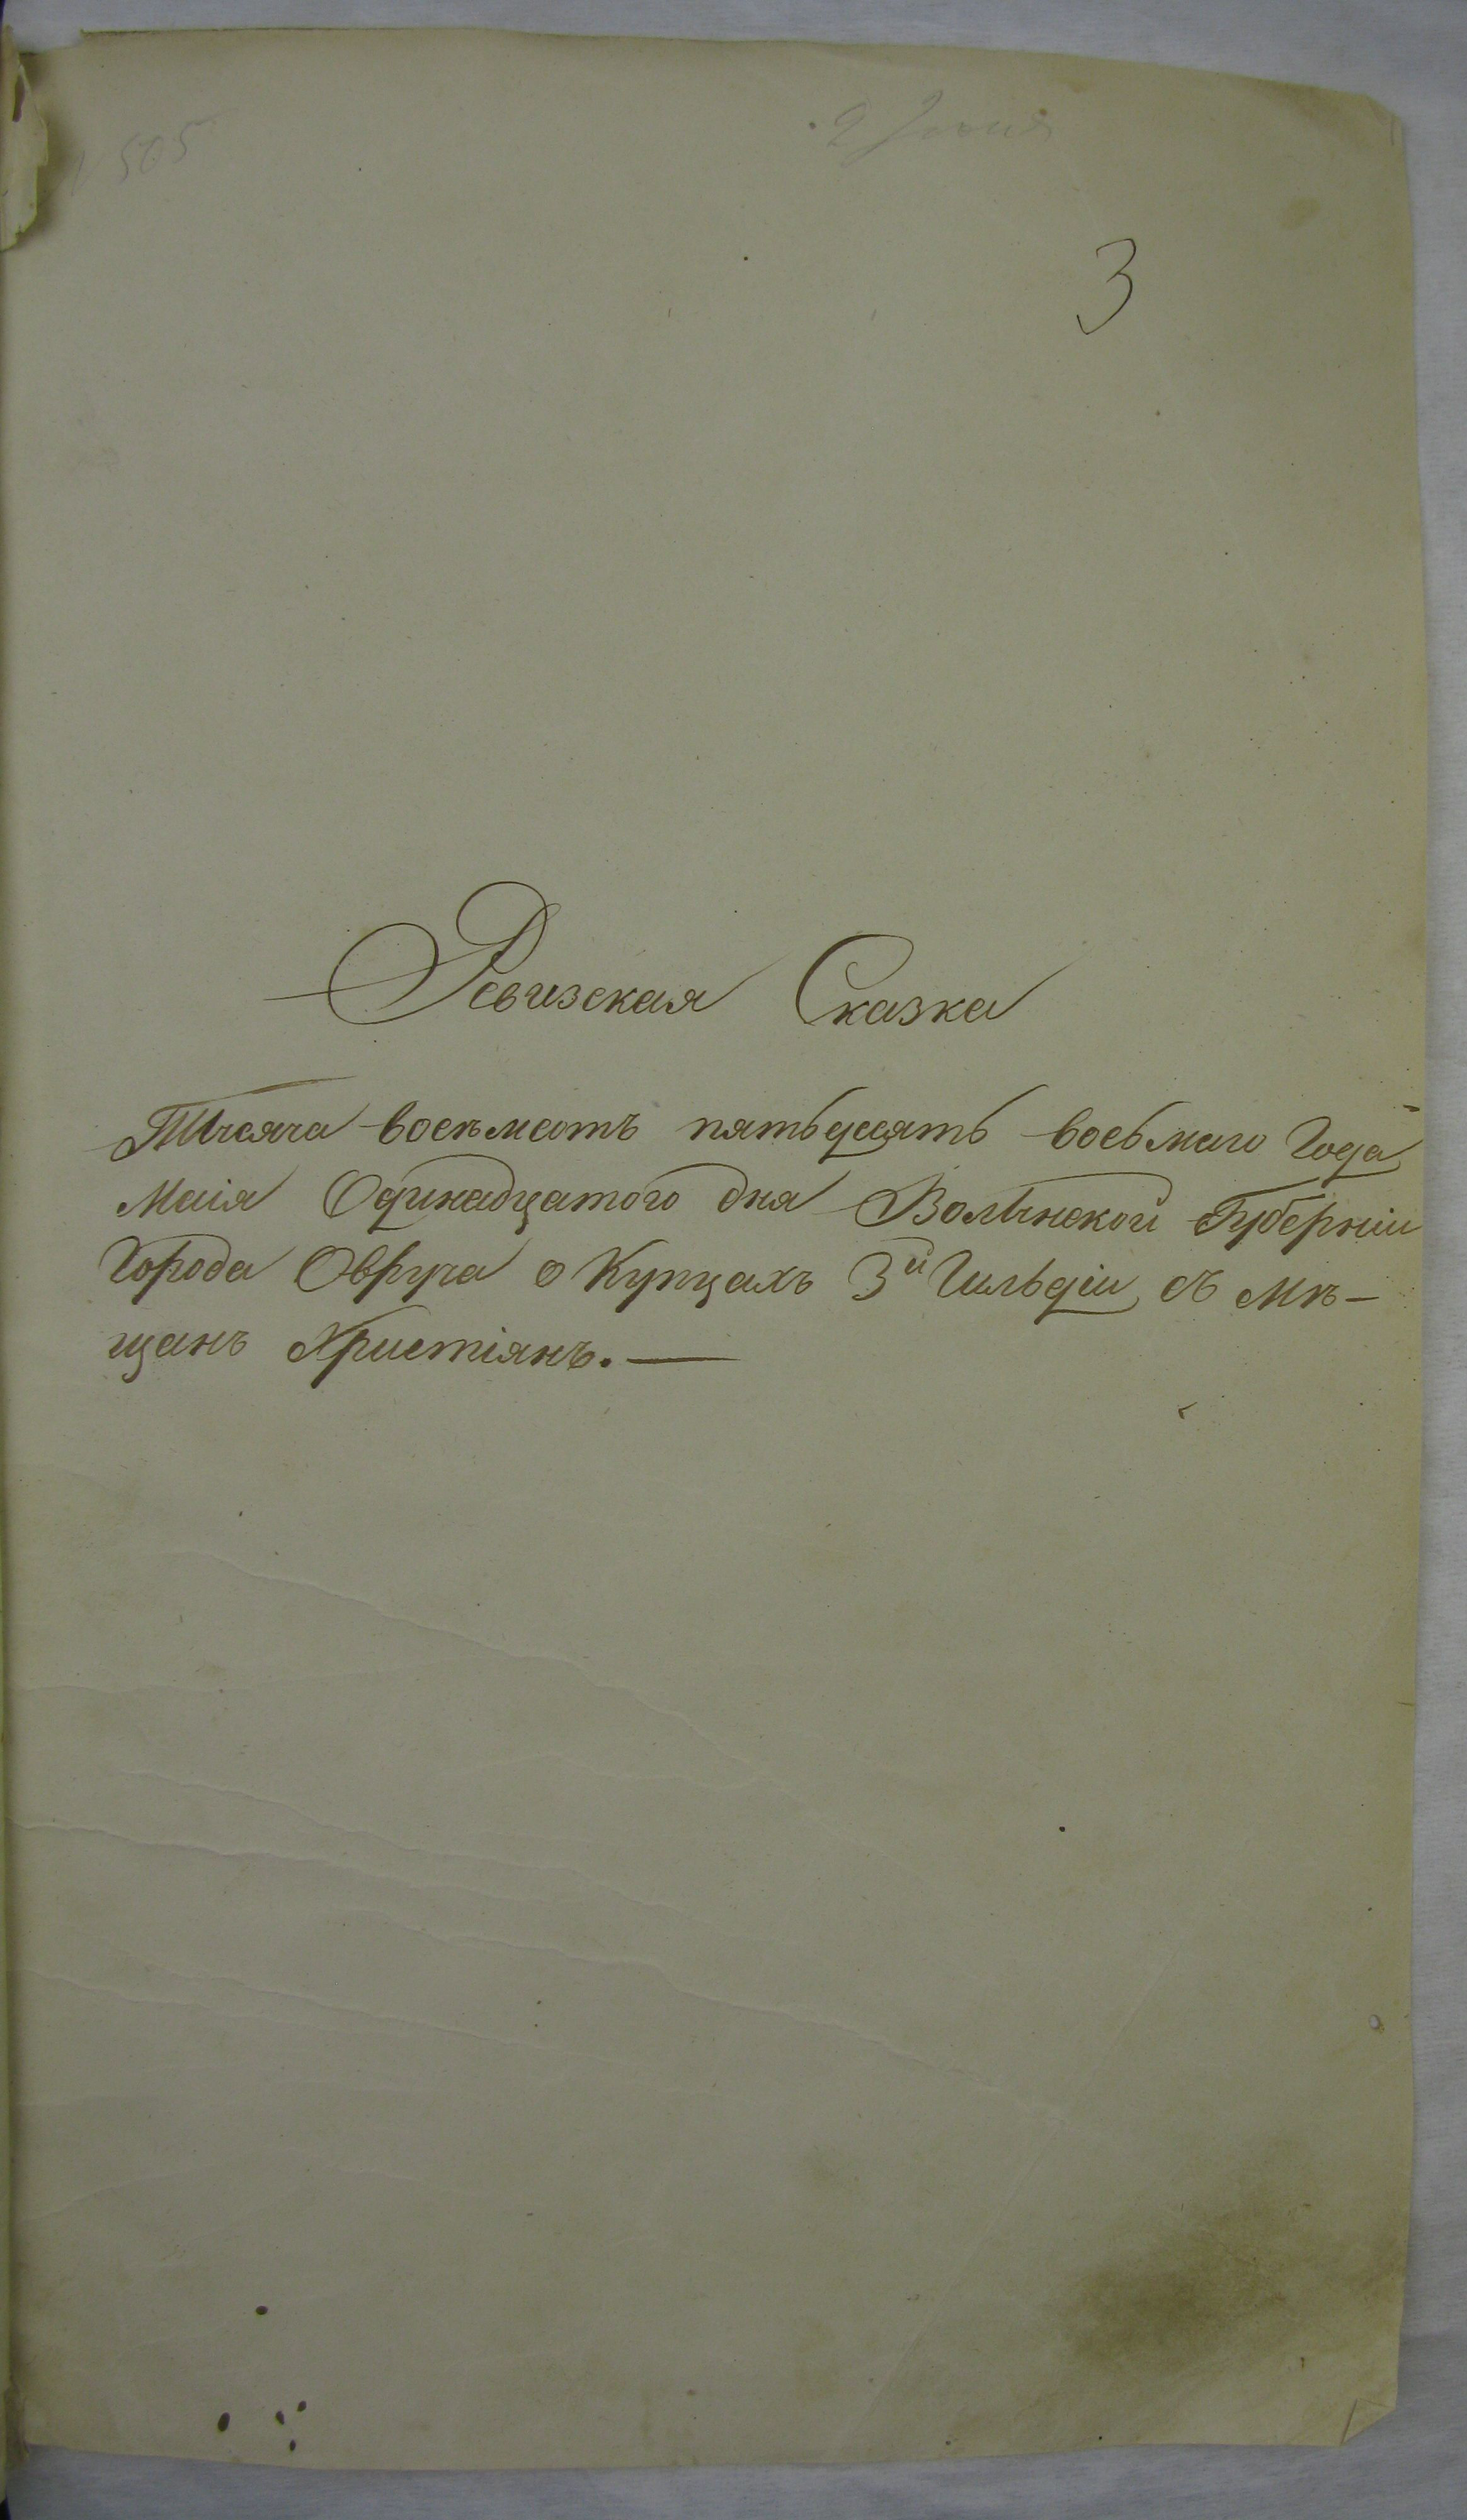 505
2 Іюня
3
Ревизская Сказка
Тысяча восемьсотъ пятьдесятъ восьмаго Года
Маія Одинадцатого дня Волынской Губерніи
Города Овруча о Купцахъ 3й Гильдіи съ мѣ-
щанъ Христіянъ.—